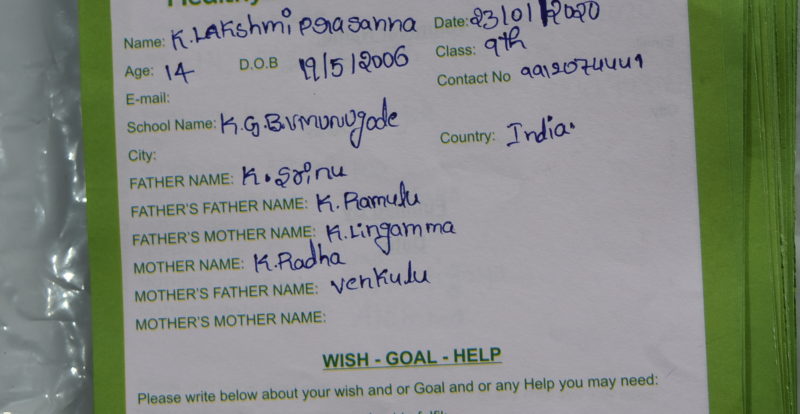 Name: K. Lakshmi Prasanna Date: 23/01/2020
Age: 14 D.O.B 19/5/2006 Class: 9th
E-mail: Contact No 9912074449
School Name: K.G.B.V munugode
City: Country: India.
FATHER NAME: K. Srinu
FATHER'S FATHER NAME: K. Ramulu
FATHER'S MOTHER NAME: K. Lingamma
MOTHER NAME: K. Radha
MOTHER'S FATHER NAME: venkulu
MOTHER'S MOTHER NAME:
WISH - GOAL - HELP
Please write below about your wish and or Goal and or any Help you may need: